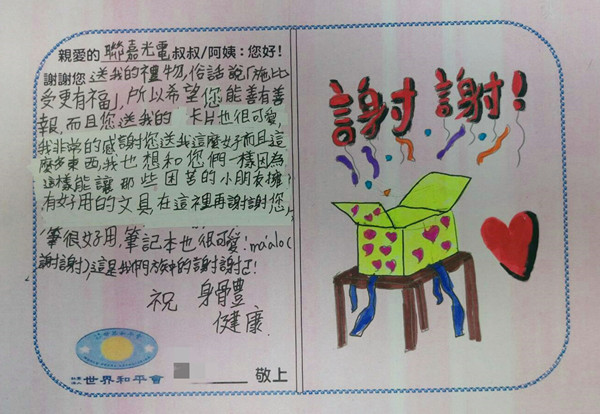 親愛的 聯嘉光電叔叔/阿姨：您好！
謝謝您送我的禮物，俗話說「施比
受更有福」，所以希望您能善有善
報，而且您送我的 卡片也很可愛，
我非常的感謝您送我這麼好而且這
麼多東西，我也想和您們一樣因為
這樣能讓那些困苦的小朋友擁
有好用的文具，在這裡再謝謝您，
筆很好用，筆記本也很可愛！maalo(
謝謝)，這是我們族的謝謝
祝 身體
健康
世界和平會
敬上
謝謝！